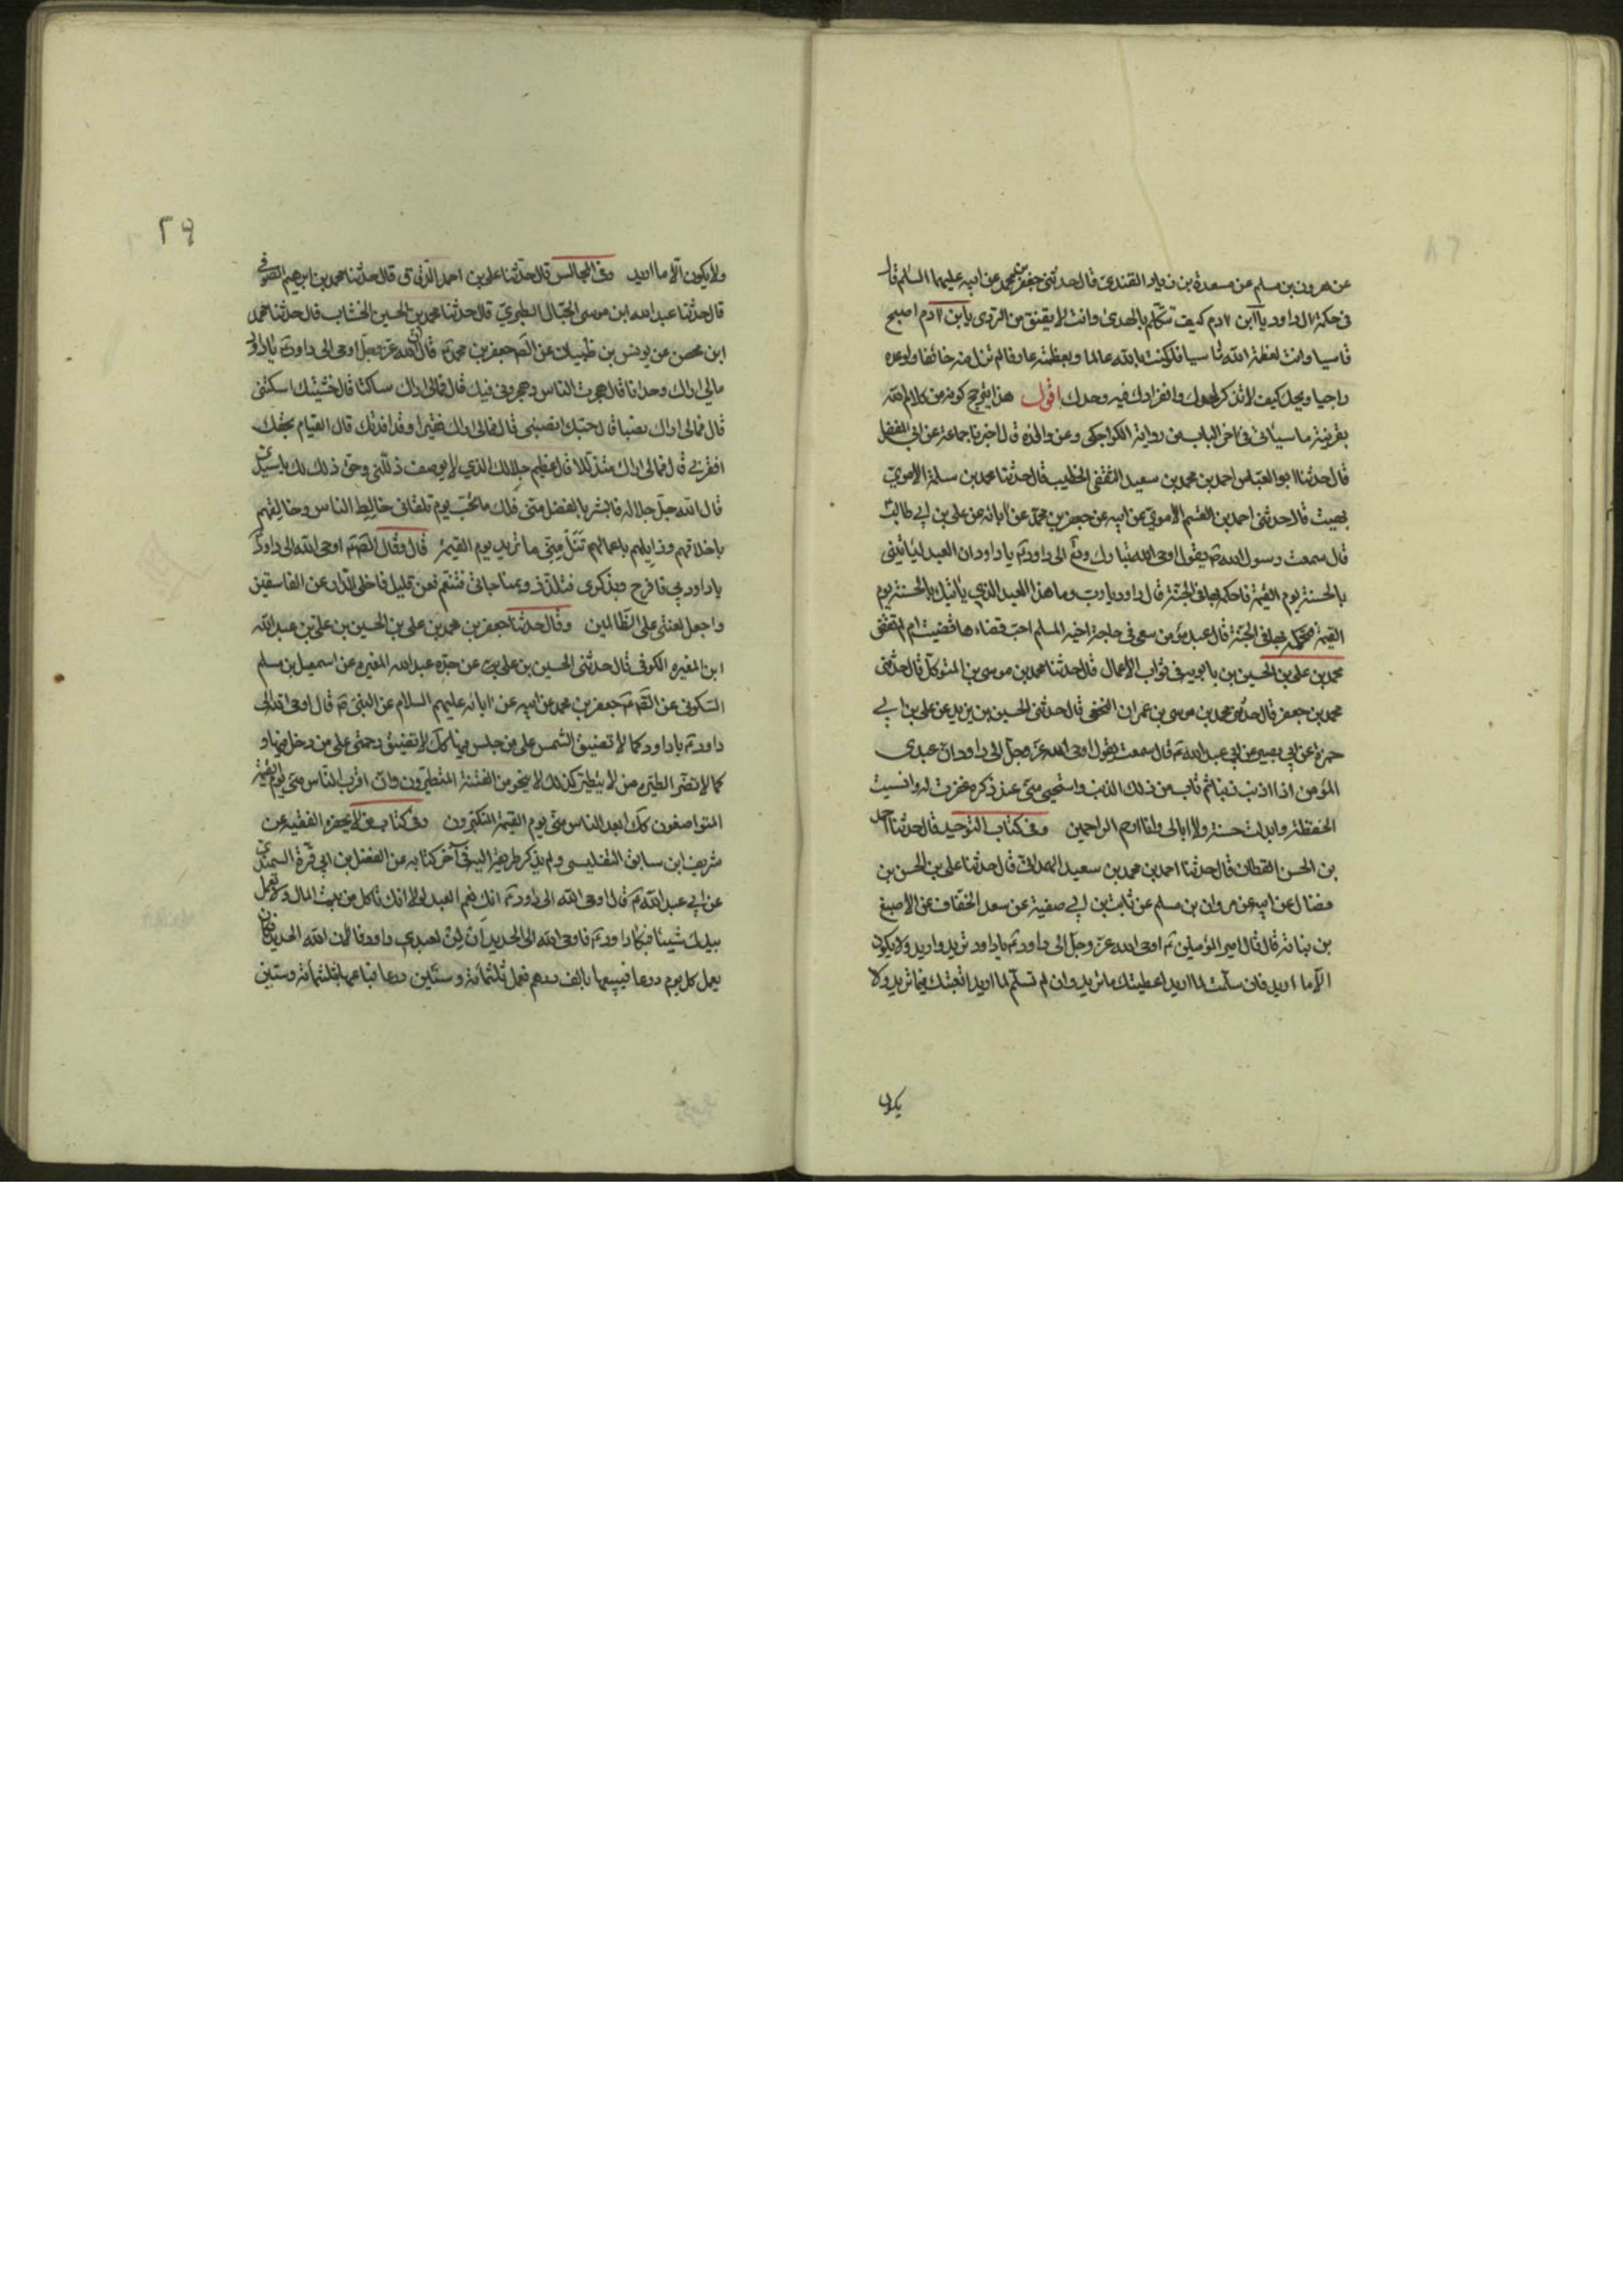 عن هرون بن مسلم عن مسعدة بن زياد القندي قال حدثني جعفر بن محمد عن ابيه عليهما السلم قال
في حكمة ال داود يا ابن ادم كيف تتكلم بالهدى وانت لا تفيق من الردى يا بن ادم اصبح
قلبك قاسيا وانت لعظمة الله ناسيا فلو كنت بالله عالما وبعظمته عارفا لم تزل منه خائفا ولوعده
راجيا ويحك كيف لا تذكر لحدك وانفرادك فيه وحدك اقول هذا يترجح كونه من كلام الله
بقرينة ما سياتي في اخر الباب من رواية الكراجكي وعن والده قال اخبرنا جماعة عن ابي المفضل
قال حدثنا ابو العباس احمد بن محمد بن سعيد الثقفي الخطيب قال حدثنا محمد بن سلمة الاموي
بهيت قال حدثني احمد بن القسم الاموي عن ابيه عن جعفر بن محمد عن ابائه عن علي بن ابي طالب
قال سمعت رسول الله ص يقول اوحى الله تبارك وتع الى داود ع يا داود ان العبد ليأتيني
بالحسنة يوم القيمة فاحكمه بها في الجنة قال داود يا رب وما هذا العبد الذي يأتيك بالحسنة يوم
القيمة فتحكمه بها في الجنة قال عبد مؤمن سعى في حاجة اخيه المسلم احب قضاءها قضيت ام لم تقض
محمد بن علي بن الحسين بن بابويه في ثواب الاعمال قال حدثنا محمد بن موسى بن المتوكل قال حدثني
محمد بن جعفر قال حدثني محمد بن موسى بن عمران النخعي قال حدثني الحسين بن يزيد عن علي بن ابي
حمزة عن ابي بصير عن ابي عبد الله ع قال سمعته يقول اوحى الله عز وجل الى داود ان عبدي
المؤمن اذا اذنب ذنبا ثم تاب من ذلك الذنب واستحيى مني عند ذكره غفرت له وانسيت
الحفظة وابدلته حسنة ولا ابالي وانا ارحم الراحمين وفي كتاب التوحيد قال حدثنا احمد
بن الحسن القطان قال حدثنا احمد بن محمد بن سعيد الهمداني قال حدثنا علي بن الحسن بن
فضال عن ابيه عن مروان بن مسلم عن ثابت بن ابي صفية عن سعد الخفاف عن الاصبغ
بن نباتة قال قال امير المؤمنين ع اوحى الله عز وجل الى داود ع يا داود تريد واريد ولا يكون
الا ما اريد فان سلمت لما اريد اعطيتك ما تريد وان لم تسلم لما اريد اتعبتك فيما تريد ولا
يكون
٢٩
ولا يكون الا ما اريد وفي المجالس قال حدثنا علي بن احمد الدقاق قال حدثنا محمد بن ابرهيم الصوفي
قال حدثنا عبد الله ابن موسى الحبال الطبري قال حدثنا محمد بن الحسين الخشاب قال حدثنا محمد
ابن محصن عن يونس بن ظبيان عن الصم جعفر بن محمد ع قال ان الله عز وجل اوحى الى داود ع يا داود
مالي اراك وحدانا قال هجرت الناس وهجروني فيك قال فمالي اراك ساكتا قال خشيتك اسكتتني
قال فمالي اراك نصبا قال حبك انصبني قال فمالي اراك فقيرا وقد افدتك قال القيام بحقك
افقرني قال فمالي اراك متذللا قال عظيم جلالك الذي لا يوصف ذللني وحق ذلك لك يا سيدي
قال الله جل جلاله فابشر بالفضل مني فلك ما تحب يوم تلقاني خالط الناس وخالقهم
باخلاقهم وزايلهم باعمالهم تنل مني ما تريد يوم القيمة قال وقال الصم ع اوحى الله الى داود
يا داود بي فافرح وبذكري فتلذذ وبمناجاتي فتنعم فعن قليل اخلي الدار من الفاسقين
واجعل لعنتي على الظالمين وقال حدثنا جعفر بن محمد بن علي بن الحسين بن علي بن عبد الله
ابن المغيره الكوفي قال حدثني الحسين بن علي عن جده عبد الله المغيره عن اسمعيل بن مسلم
السكوني عن الصم ع جعفر بن محمد عن ابيه عن ابائه عليهم السلام عن النبي ص قال اوحى الله الى
داود ع يا داود كما لا تضيق الشمس على من جلس فيها كك لا تضيق رحمتي على من دخل فيها و
كما لا تضر الطيرة من لا يتطير كذلك لا ينجو من الفتنة المتطيرون وان اقرب الناس مني يوم القيمة
المتواضعون كك ابعد الناس مني يوم القيمة المتكبرون وفي كتاب من لا يحضره الفقيه عن
شريف ابن سابق التفليسي ولم يذكر طريقه اليه في آخر كتابه عن الفضل بن ابي قرة السمندي
عن ابي عبد الله ع قال اوحى الله الى داود ع انك نعم العبد لولا انك تاكل من بيت المال ولا تعمل
بيدك شيئا فبكا داود ع فاوحى الله الى الحديد ان لن لعبدي داود فالان الله الحديد فكان
يعمل كل يوم درعا فيبيعها بالف درهم فعمل ثلثمائة وستين درعا فباعها بثلثمائة وستين